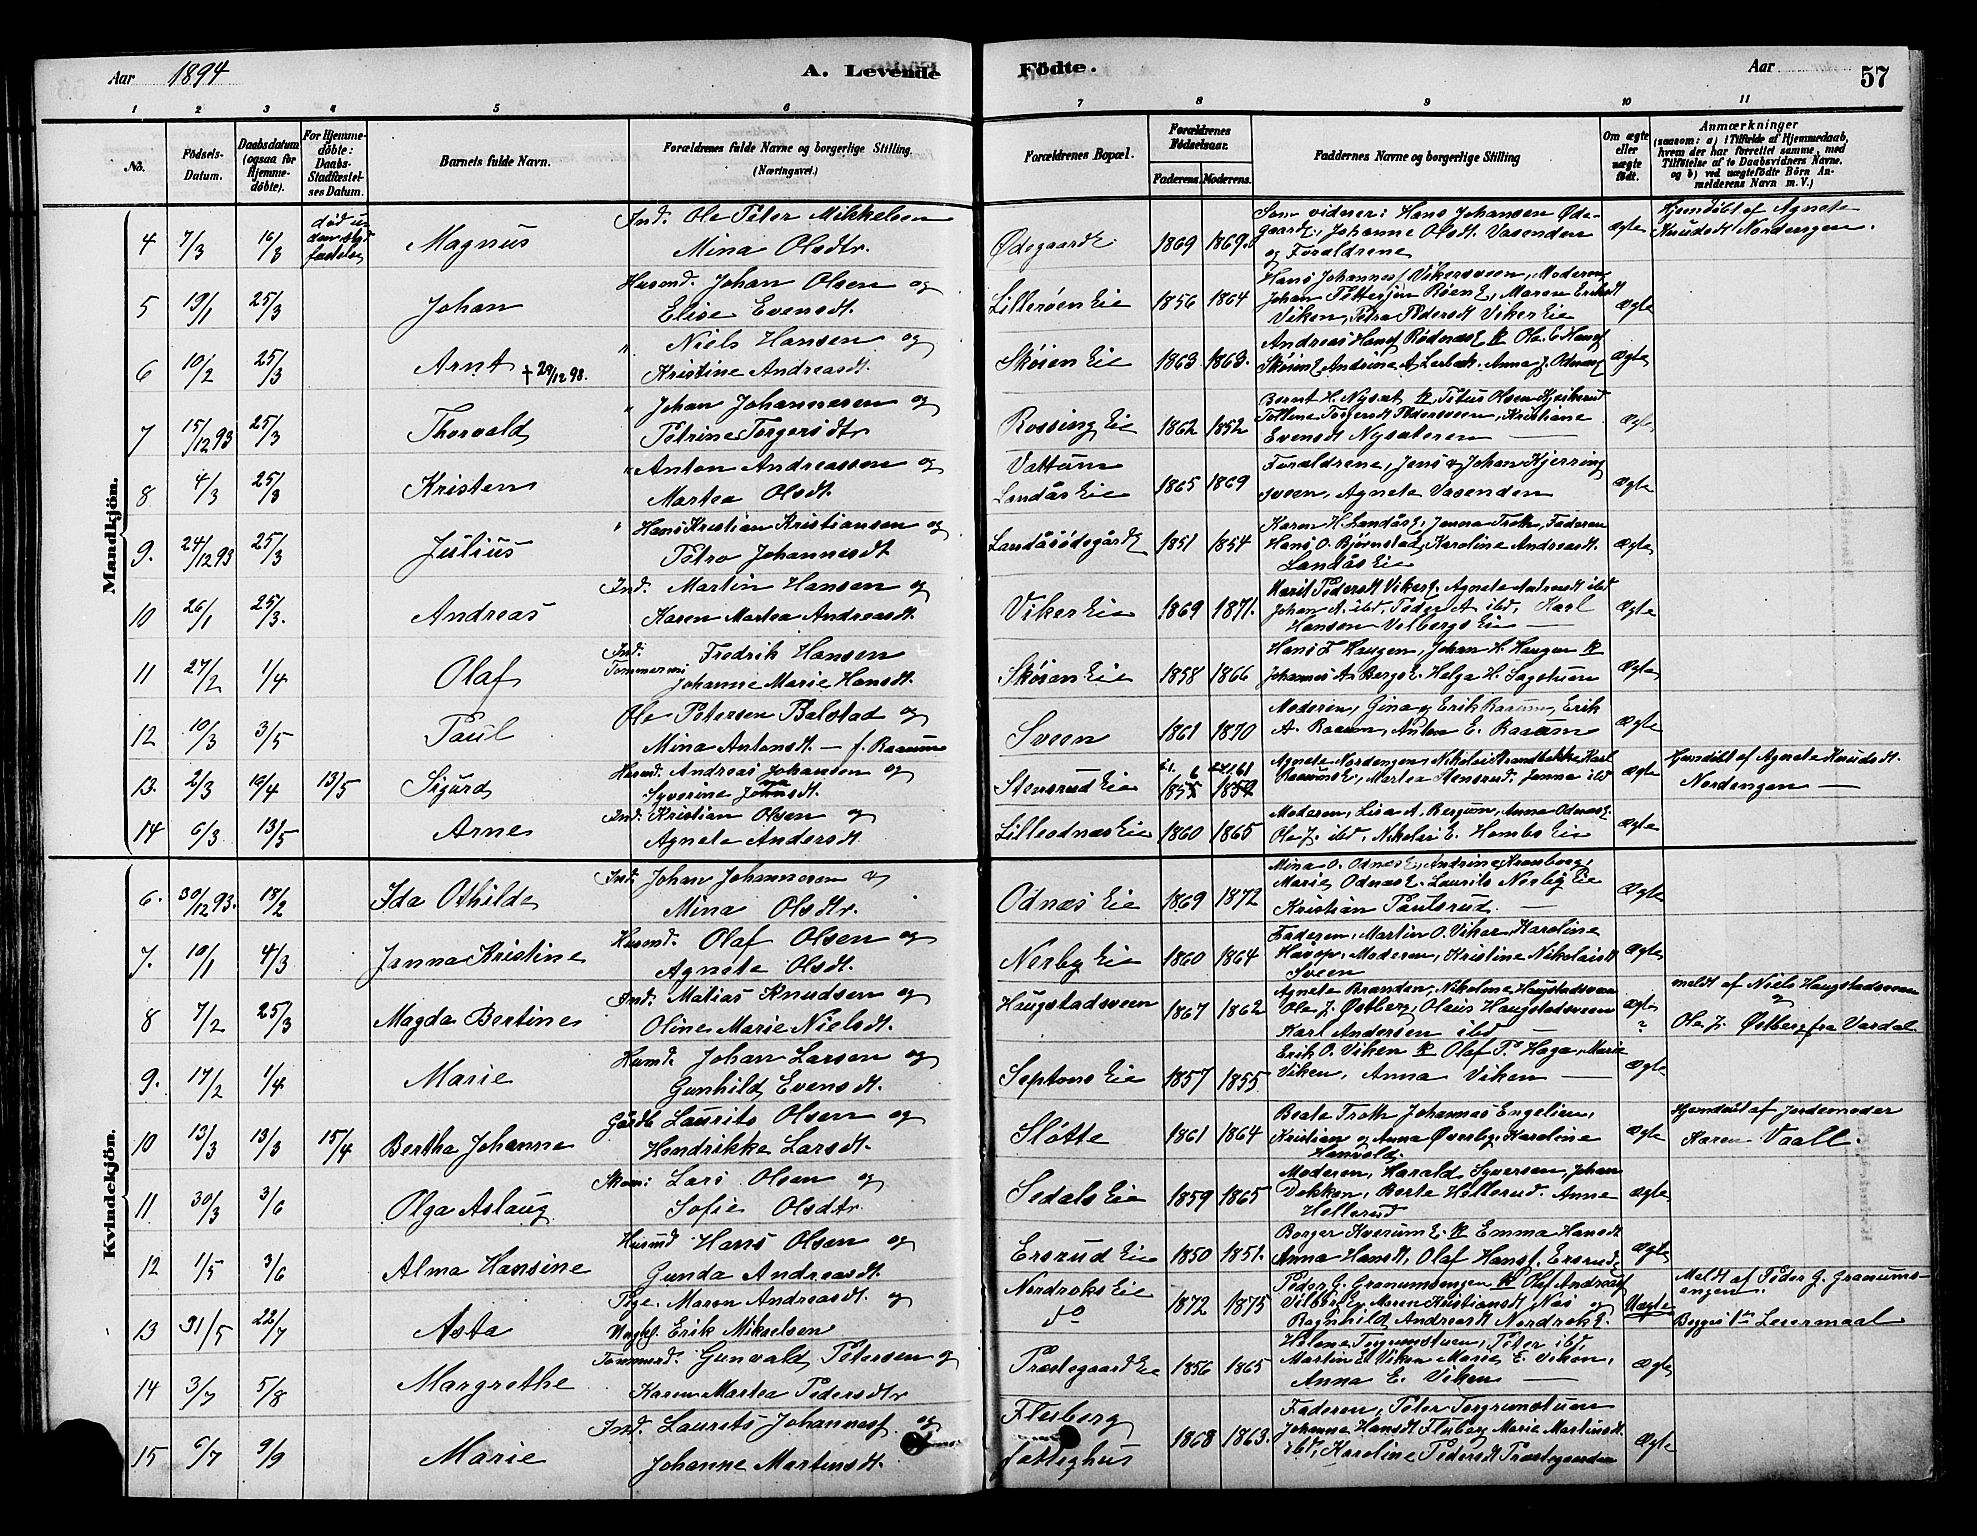 Aar 1894 A. Levende Födte. Aar 57
1 2 3 4 5 6 7 8 9 10 11
No. Födsels-Datum. Daabsdatum (ogsaa for Hjemmedöbte). For Hjemmedöbte: Daabs-Stadfæstelses Datum. Barnets fulde Navn. Forældrenes fulde Navne og borgerlige Stilling. (Næringsvei.) Forældrenes Bopæl. Forældrenes Födselsaar. Faderens. Moderens. Faddernes Navne og borgerlige Stilling Om ægte eller uægte födt. Anmærkninger (saasom: a) i Tilfælde af Hjemmedaab, hvem der har forrettet samme, med Tilföielse af to Daabsvidners Navne, og b) ved uægtefödte Börn Anmelderens Navn m. V.)
Mandkjön.
4 7/3 16/3 död uden stadfæstelse Magnus Ind. Ole Peter Mikkelsen Mina Olsdtr. Ødegaard E 1869 1869. Som vidner: Hans Johansen Ødegaard, Johanne Olsdt. Vasenden og Forældrene ægte Hjemdöbt af Agnete Knudsdt Nordengen.
5 19/1 25/3 Johan Husmd. Johan Olsen og Elise Evensdt. Lilleröen Eie 1856 1864 Hans Johannesf Vikersveen, Moderen, Johan Pettersen Röen E, Maren Eriksdt Viken, Petra Pedersdt Viker Eie ægte
6 10/2 25/3 Arnt † 29/12 98. " Niels Hansen og Kristine Andreasdt. Sköien Eie 1863 1863. Andreas Hansf Rödnæs E Ole E Hansf Sköien E Andrine A. Lerbæk. Anna J. Odnæs E ægte
7 15/12 93 25/3 Thorvald " Johan Johannesen og Petrine Torgersdtr Rossing Eie 1862 1852 Bernt H. Nysæt Petrus Olsen Kjeikerud Torgersdt Pedersveen, Kristiane Evensdt Nysæteren ægte
8 4/3 25/3 Kristen " Anton Andreassen og Martea Olsdt. Vattum Landås Eie 1865 1869 Forældrene, Jens & Johan Kjerringsveen, Agnete Vasenden ægte
9. 24/12 93 25/3 Julius " Hans Kristian Kristiansen og Petro Johannesdt Landåsödegård E 1851 1854 Karen H. Landås E, Jenna Troth, Faderen Hans O. Bjørnstad, Karoline Andreasdt. Landås Eie ægte
10 26/1 25/3. Andreas Ind. Martin Hansen og Karen Martea Andreasdt. Viker Eie 1869 1871. Marit Pedersdt Viker E, Agnete Andreasdt ibd Johan A. ibd, Peder A ibd, Karl Hansen Velbergs Eie ægte
11 27/2 1/4 Olaf Ind. Tømmermd. Fredrik Hansen Johanne Marie Hansdt. Sköien Eie 1858 1866 Hans F Haugen, Johan H. Haugen Johannes A. Bergs E. Helga H. Sagstuen ægte
12 10/3 3/5 Paul Ole Petersen Balstad og Mina Antonsdt. — f. Raasum Sveen 1861 1870 Moderen, Gina og Erik Raasum, Erik A. Raasum, Anton E. Raasum ægte
13. 2/3 19/4 13/5 Sigurd Husmd. Andreas Johansen og Syverine Johnsdt. Stensrud Eie 1855 1859 Agnete Nordengen, Nikolai Strandbakke Karl Raasums E, Martea Stensrud, Jenna ibd ægte Hjemdöbt af Agnete Knudsdt. Nordengen —
14 6/3 13/5 Arne Ind. Kristian Olsen og Agnete Andersdt. Lilleodnæs Eie 1860 1865 Moderen, Lisa A. Bergum, Anna Odnæs E. Ole J. ibd, Nikolai E. Hombs Eie ægte
Kvindekjön.
6. 30/12 93. 18/2 Ida Othilde Ind. Johan Johannesen og Mina Olsdtr. Odnæs Eie 1869 1872 Mina O. Odnæs E, Andrine Kronborg, Marie Odnæs E. Laurits Nerby Eie Kristian Paulsrud — ægte
7. 10/1 4/3 Janna Kristine Husmd. Olaf Olsen og Agnete Olsdt. Nerby Eie 1860 1864 Faderen, Martin O. Viker Karoline Moderen, Kristine Nikolaisdt Sveen ægte
8 7/2 25/3 Magda Bertine Ind. Matias Knudsen og Oline Marie Nielsdt. Haugstadsveen 1867 1862 Agnete Brænden, Nikoline Haugstadsveen Ole J. Østberg, Olaus Haugstadsveen Karl Andersen ibd — ægte ? meldt af Niels Haugstadsveen og Ole J. Østberg fra Vardal
9. 17/2 1/4 Marie Husmd. Johan Larsen og Gunhild Evensdt. Septons Eie 1857 1855 Erik O. Viken Olaf P. Haga, Marie Viken, Anna Viken — ægte
10 13/3 13/3 15/4 Bertha Johanne Gårdb Laurits Olsen og Hendrikke Larsdt. Slötte 1861 1864 Beate Troth Johannes Engelien, Kristian og Anna Øverby, Karoline Hanvold. ægte Hjemdöbt af jordemoder Karen Vaall.
11 30/3 3/6 Olga Aslaug Skom: Lars Olsen og Sofie Olsdtr. Sedals Eie 1859 1865 Moderen, Harald Syversen, Johan Dokken, Berte Hellerud. Anne Hellerud ægte
12 1/5 3/6 Alma Hansine Husmd Hans Olsen og Gunda Andreasdt. Ersrud Eie 1850 1851. Borger Kverum E. Emma Hansdt Anna Hansdt, Olaf Hansf. Ersrud E ægte
13 31/5 22/7 Asta Pige. Maren Andreasdt. og Ungkf. Erik Mikaelsen Nordroks Eie do 1872 1875 Peder G. Granumsengen Olaf Andreasf Velberg E, Maren Kristiansdt Næs og Ragnhild Andreasdt Nordrok E. Uægte Meldt af Peder G. Granumsengen. Begges 1ste Leiermaal
14 3/7 5/8 Margrethe Tømmermd. Gunvald Petersen og Karen Martea Pedersdtr Præstegaard Eie 1856 1865 Helene Torgrimstuen, Peter ibd, Martin El Viken Marie E. Viken, Anna E. Viken — ægte
15 6/7 9/9 Marie Ind. Laurits Johannesf og Johanne Martinsdt. Fluberg fattighus 1868 1863. Faderen, Peter Torgrimstuen Johanne Hansdt Fluberg Marie Martinsdt. ibd, Karoline Pedersdt Præstegaarden ægte